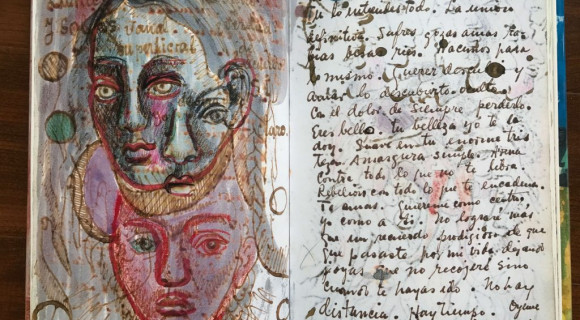 superficial
lo entiendes todo. La union
definitiva. Sufres gozas amas ra
bias besas ries. Nacimos para
lo mismo. Querer descu y
amar lo descubierto. oculto.
Con el dolor de siempre perderlo.
Eres bella. tu belleza yo te la
doy. Suave en tu enorme tris
teza. Amargura simple. Arma
contra todo lo que no te libra
Rebelión con todo lo que te encadena.
Te amas. Quiereme como centro,
yo como a ti. No lograré mas
que un recuerdo prodigioso de que
pasaste por mi vida dejando
joyas que no recogeré sino
cuando te hayas ido. No hay
distancia. Hay tiempo. Oyeme